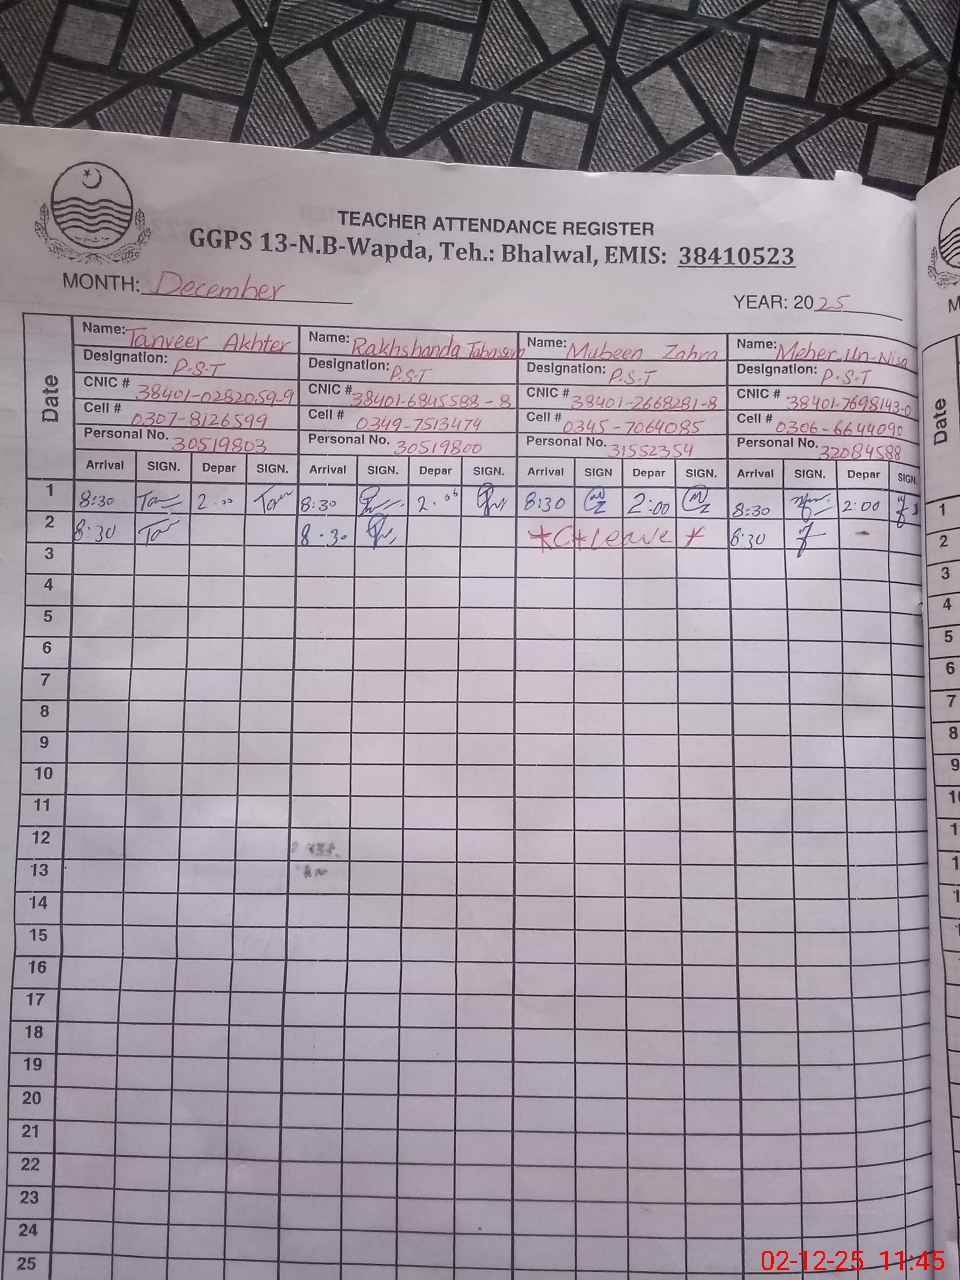 TEACHER ATTENDANCE REGISTER
GGPS 13-N.B-Wapda, Teh.: Bhalwal, EMIS: 38410523
MONTH: December
YEAR: 2025
Date
Name: Tanveer Akhter
Designation: P.S.T
CNIC # 38401-0282059-9
Cell # 0307-8126599
Personal No. 30519803
Name: Rakhshanda Tabasum
Designation: P.S.T
CNIC # 38401-6845588-8
Cell # 0349-7513474
Personal No. 30519800
Name: Mubeen Zahra
Designation: P.S.T
CNIC # 38401-2668281-8
Cell # 0345-7064085
Personal No. 31552354
Name: Meher-Un-Nisa
Designation: P.S.T
CNIC # 38401-7698143-0
Cell # 0306-6644090
Personal No. 32084588
Arrival SIGN. Depar SIGN. Arrival SIGN. Depar SIGN. Arrival SIGN Depar SIGN. Arrival SIGN. Depar SIGN.
1 8:30 2.00 8:30 2.00 8:30 2:00 8:30 2:00
2 8:30 8.30 *C*Leave * 8:30 -
3
4
5
6
7
8
9
10
11
12
13
14
15
16
17
18
19
20
21
22
23
24
25
Date
1
2
3
4
5
6
7
8
9
02-12-25 11:45